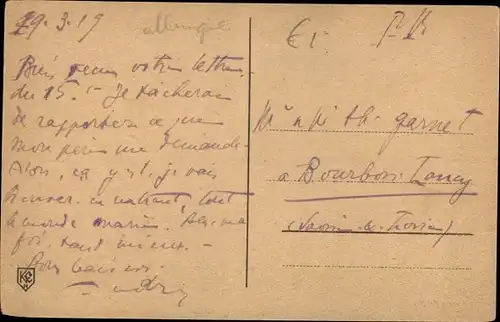 29.3.19
Bien reçu votre lettre
du 15. Je tâcherai
de rapporter ce que
mon père me demande
Alors, ça y est, je vais
trouver en rentrant, tout
le monde marié.
foi, tant mieux.
Bons baisers
F.M.
Mr & Me Th. Garnet
à Bourbon-Lancy
(Saône & Loire)